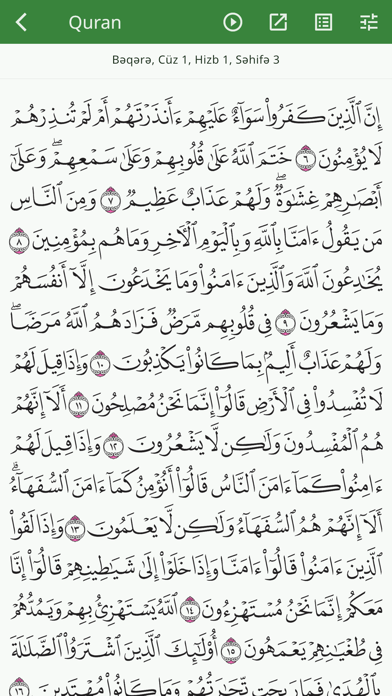 Quran
Bəqərə, Cüz 1, Hizb 1, Səhifə 3
إِنَّ ٱلَّذِينَ كَفَرُوا۟ سَوَآءٌ عَلَيْهِمْ ءَأَنذَرْتَهُمْ أَمْ لَمْ تُنذِرْهُمْ
لَا يُؤْمِنُونَ ٦ خَتَمَ ٱللَّهُ عَلَىٰ قُلُوبِهِمْ وَعَلَىٰ سَمْعِهِمْ ۖ وَعَلَىٰٓ
أَبْصَـٰرِهِمْ غِشَـٰوَةٌ ۖ وَلَهُمْ عَذَابٌ عَظِيمٌ ٧ وَمِنَ ٱلنَّاسِ
مَن يَقُولُ ءَامَنَّا بِٱللَّهِ وَبِٱلْيَوْمِ ٱلْـَٔاخِرِ وَمَا هُم بِمُؤْمِنِينَ
٨ يُخَـٰدِعُونَ ٱللَّهَ وَٱلَّذِينَ ءَامَنُوا۟ وَمَا يَخْدَعُونَ إِلَّآ أَنفُسَهُمْ
وَمَا يَشْعُرُونَ ٩ فِى قُلُوبِهِم مَّرَضٌ فَزَادَهُمُ ٱللَّهُ مَرَضًا ۖ
وَلَهُمْ عَذَابٌ أَلِيمٌۢ بِمَا كَانُوا۟ يَكْذِبُونَ ١٠ وَإِذَا قِيلَ لَهُمْ
لَا تُفْسِدُوا۟ فِى ٱلْأَرْضِ قَالُوٓا۟ إِنَّمَا نَحْنُ مُصْلِحُونَ ١١ أَلَآ إِنَّهُمْ
هُمُ ٱلْمُفْسِدُونَ وَلَـٰكِن لَّا يَشْعُرُونَ ١٢ وَإِذَا قِيلَ لَهُمْ
ءَامِنُوا۟ كَمَآ ءَامَنَ ٱلنَّاسُ قَالُوٓا۟ أَنُؤْمِنُ كَمَآ ءَامَنَ ٱلسُّفَهَآءُ ۗ
أَلَآ إِنَّهُمْ هُمُ ٱلسُّفَهَآءُ وَلَـٰكِن لَّا يَعْلَمُونَ ١٣ وَإِذَا لَقُوا۟
ٱلَّذِينَ ءَامَنُوا۟ قَالُوٓا۟ ءَامَنَّا وَإِذَا خَلَوْا۟ إِلَىٰ شَيَـٰطِينِهِمْ قَالُوٓا۟ إِنَّا
مَعَكُمْ إِنَّمَا نَحْنُ مُسْتَهْزِءُونَ ١٤ ٱللَّهُ يَسْتَهْزِئُ بِهِمْ وَيَمُدُّهُمْ
فِى طُغْيَـٰنِهِمْ يَعْمَهُونَ ١٥ أُو۟لَـٰٓئِكَ ٱلَّذِينَ ٱشْتَرَوُا۟ ٱلضَّلَـٰلَةَ
بِٱلْهُدَىٰ فَمَا رَبِحَت تِّجَـٰرَتُهُمْ وَمَا كَانُوا۟ مُهْتَدِينَ ١٦